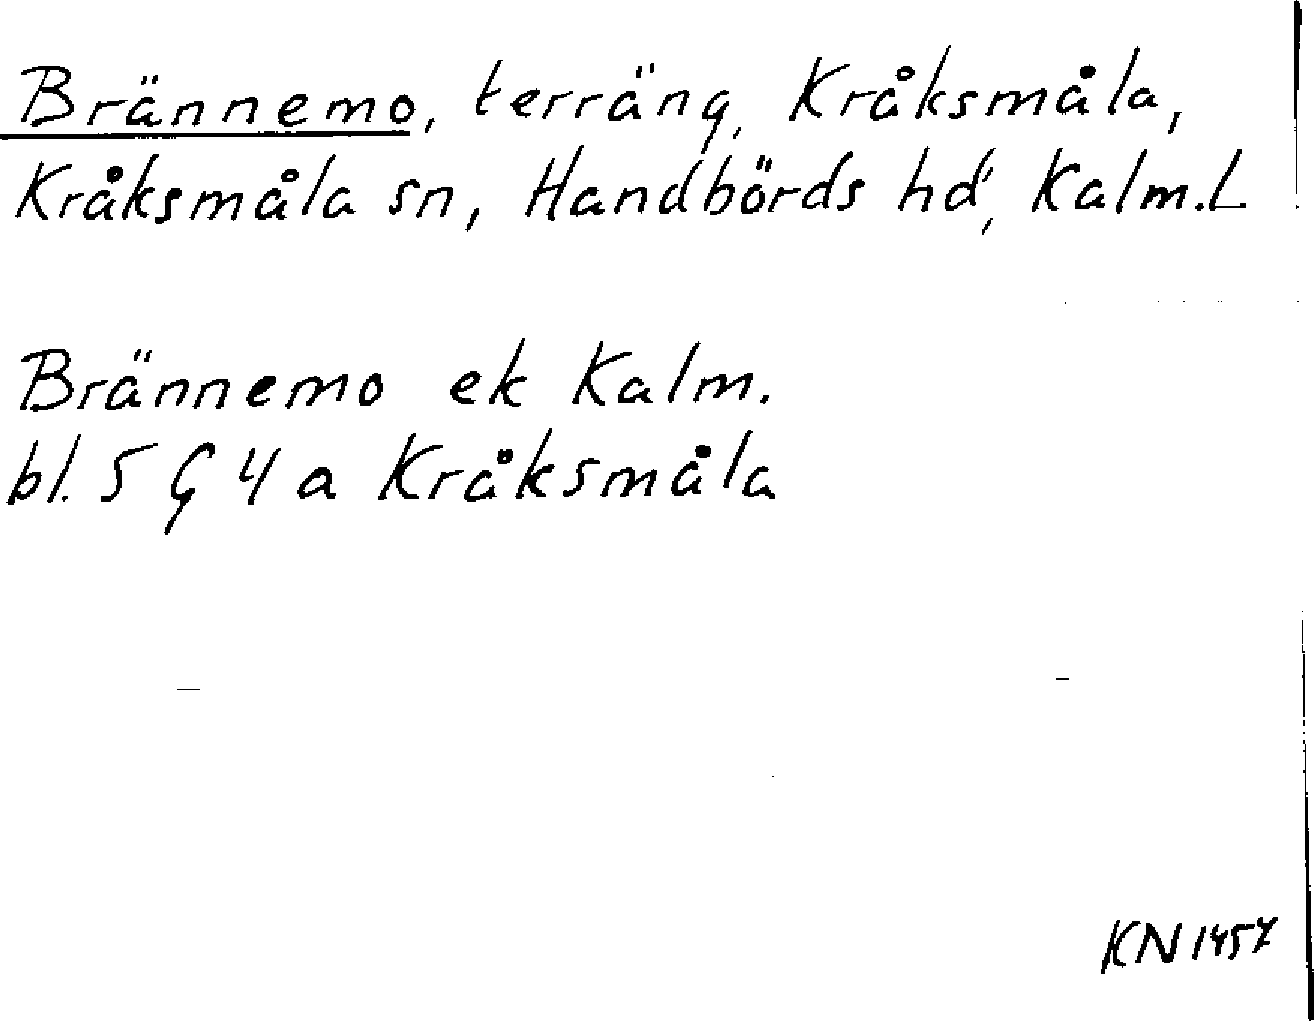 Brännemo, terräng, Kråksmåla,
Kråksmåla sn, Handbörds hd, Kalm.L
Brännemo ek Kalm.
bl. 5 G 4 a Kråksmåla
KN 1457